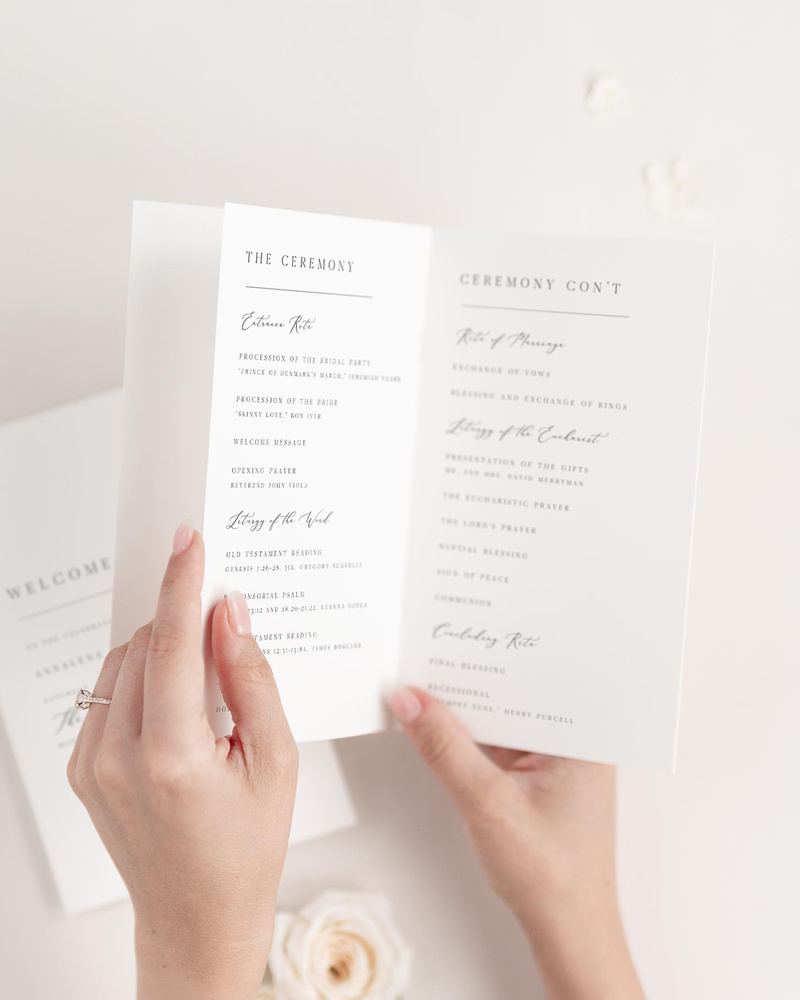 THE CEREMONY
Entrance Rite
PROCESSION OF THE BRIDAL PARTY
"PRINCE OF DENMARK'S MARCH," JEREMIAH CLARK
PROCESSION OF THE BRIDE
"SKINNY LOVE," BON IVER
WELCOME MESSAGE
OPENING PRAYER
REVEREND JOHN VIOLA
Liturgy of the Word
OLD TESTAMENT READING
GENESIS 1:26-28, 31A, GREGORY SCAVELLI
ONSORIAL PSALM
3:12 AND 18:20-21.22, LEANNA
TAMENT READING
NS 12:31-13:8A, JAMES
HO
CEREMONY CON'T
Rite of Marriage
EXCHANGE OF VOWS
BLESSING AND EXCHANGE OF RINGS
Liturgy of the Eucharist
PRESENTATION OF THE GIFTS
MR. AND MRS. DAVID MERRYMAN
THE EUCHARISTIC PRAYER
THE LORD'S PRAYER
NUPTIAL BLESSING
SIGN OF PEACE
COMMUNION
Concluding Rite
FINAL BLESSING
RECESSIONAL
TUNE," HENRY PURCELL
WELCOME
TO THE CELEBRA
ANNALENA
The